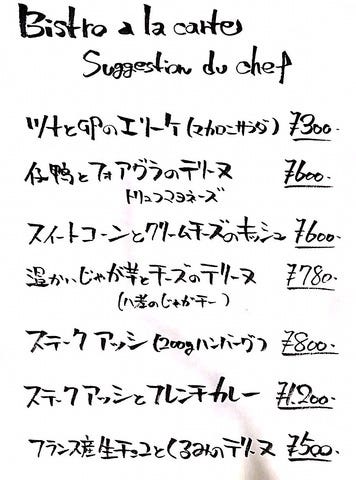 Bistro a la carte
Suggestion du chef
ツナとGPのエリーケ(マカロニサラダ) ¥300-
仔鴨とフォアグラのテリーヌ ¥600-
トリュフマヨネーズ
スイートコーンとクリームチーズのキッシュ ¥600-
温かいじゃが芋とチーズのテリーヌ ¥780-
ステーク アッシ(200gハンバーグ) ¥800-
ステーク アッシとフレンチカレー ¥1,200-
フランス産生チョコとくるみのテリーヌ ¥500-